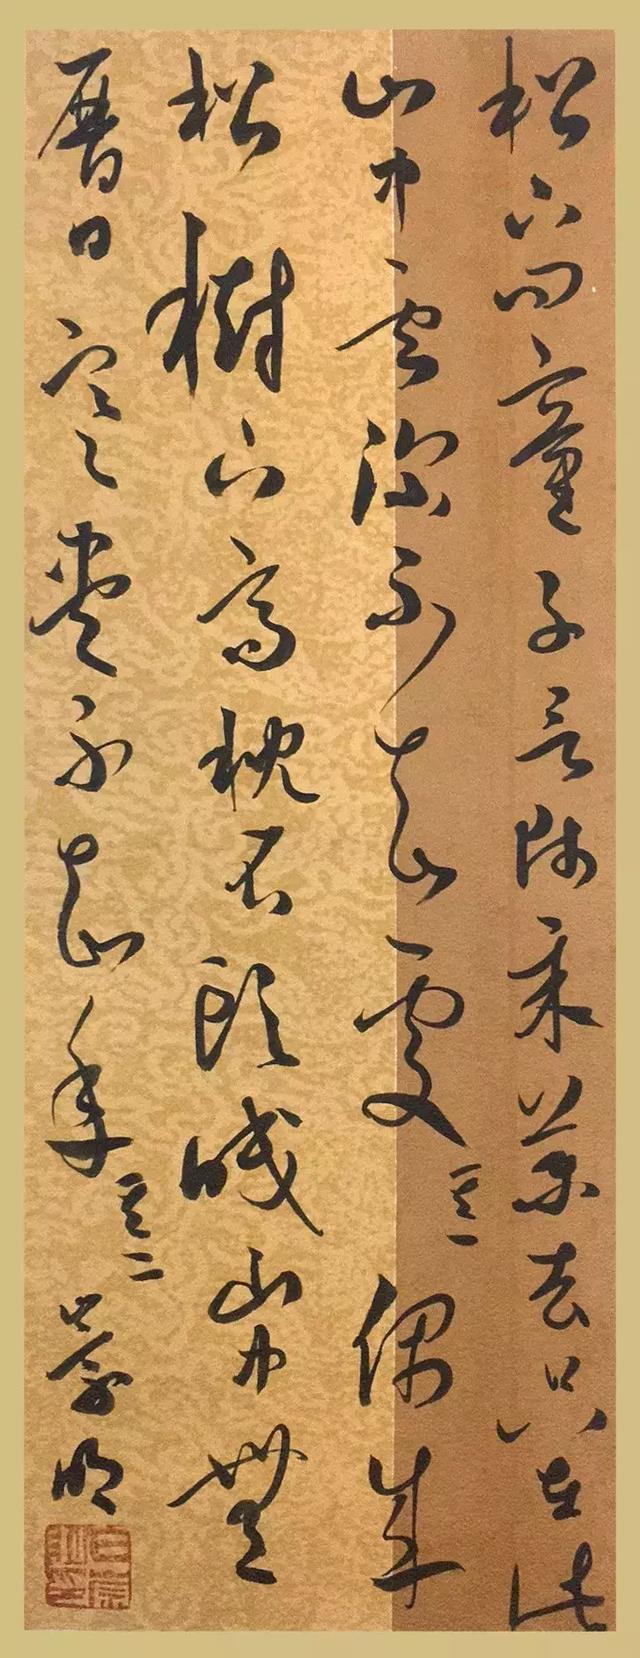 松下問童子言師采藥去只在此
山中雲深不知處 其一 偶來
松樹下高枕石頭眠山中無
曆日寒盡不知年 其二 崇明